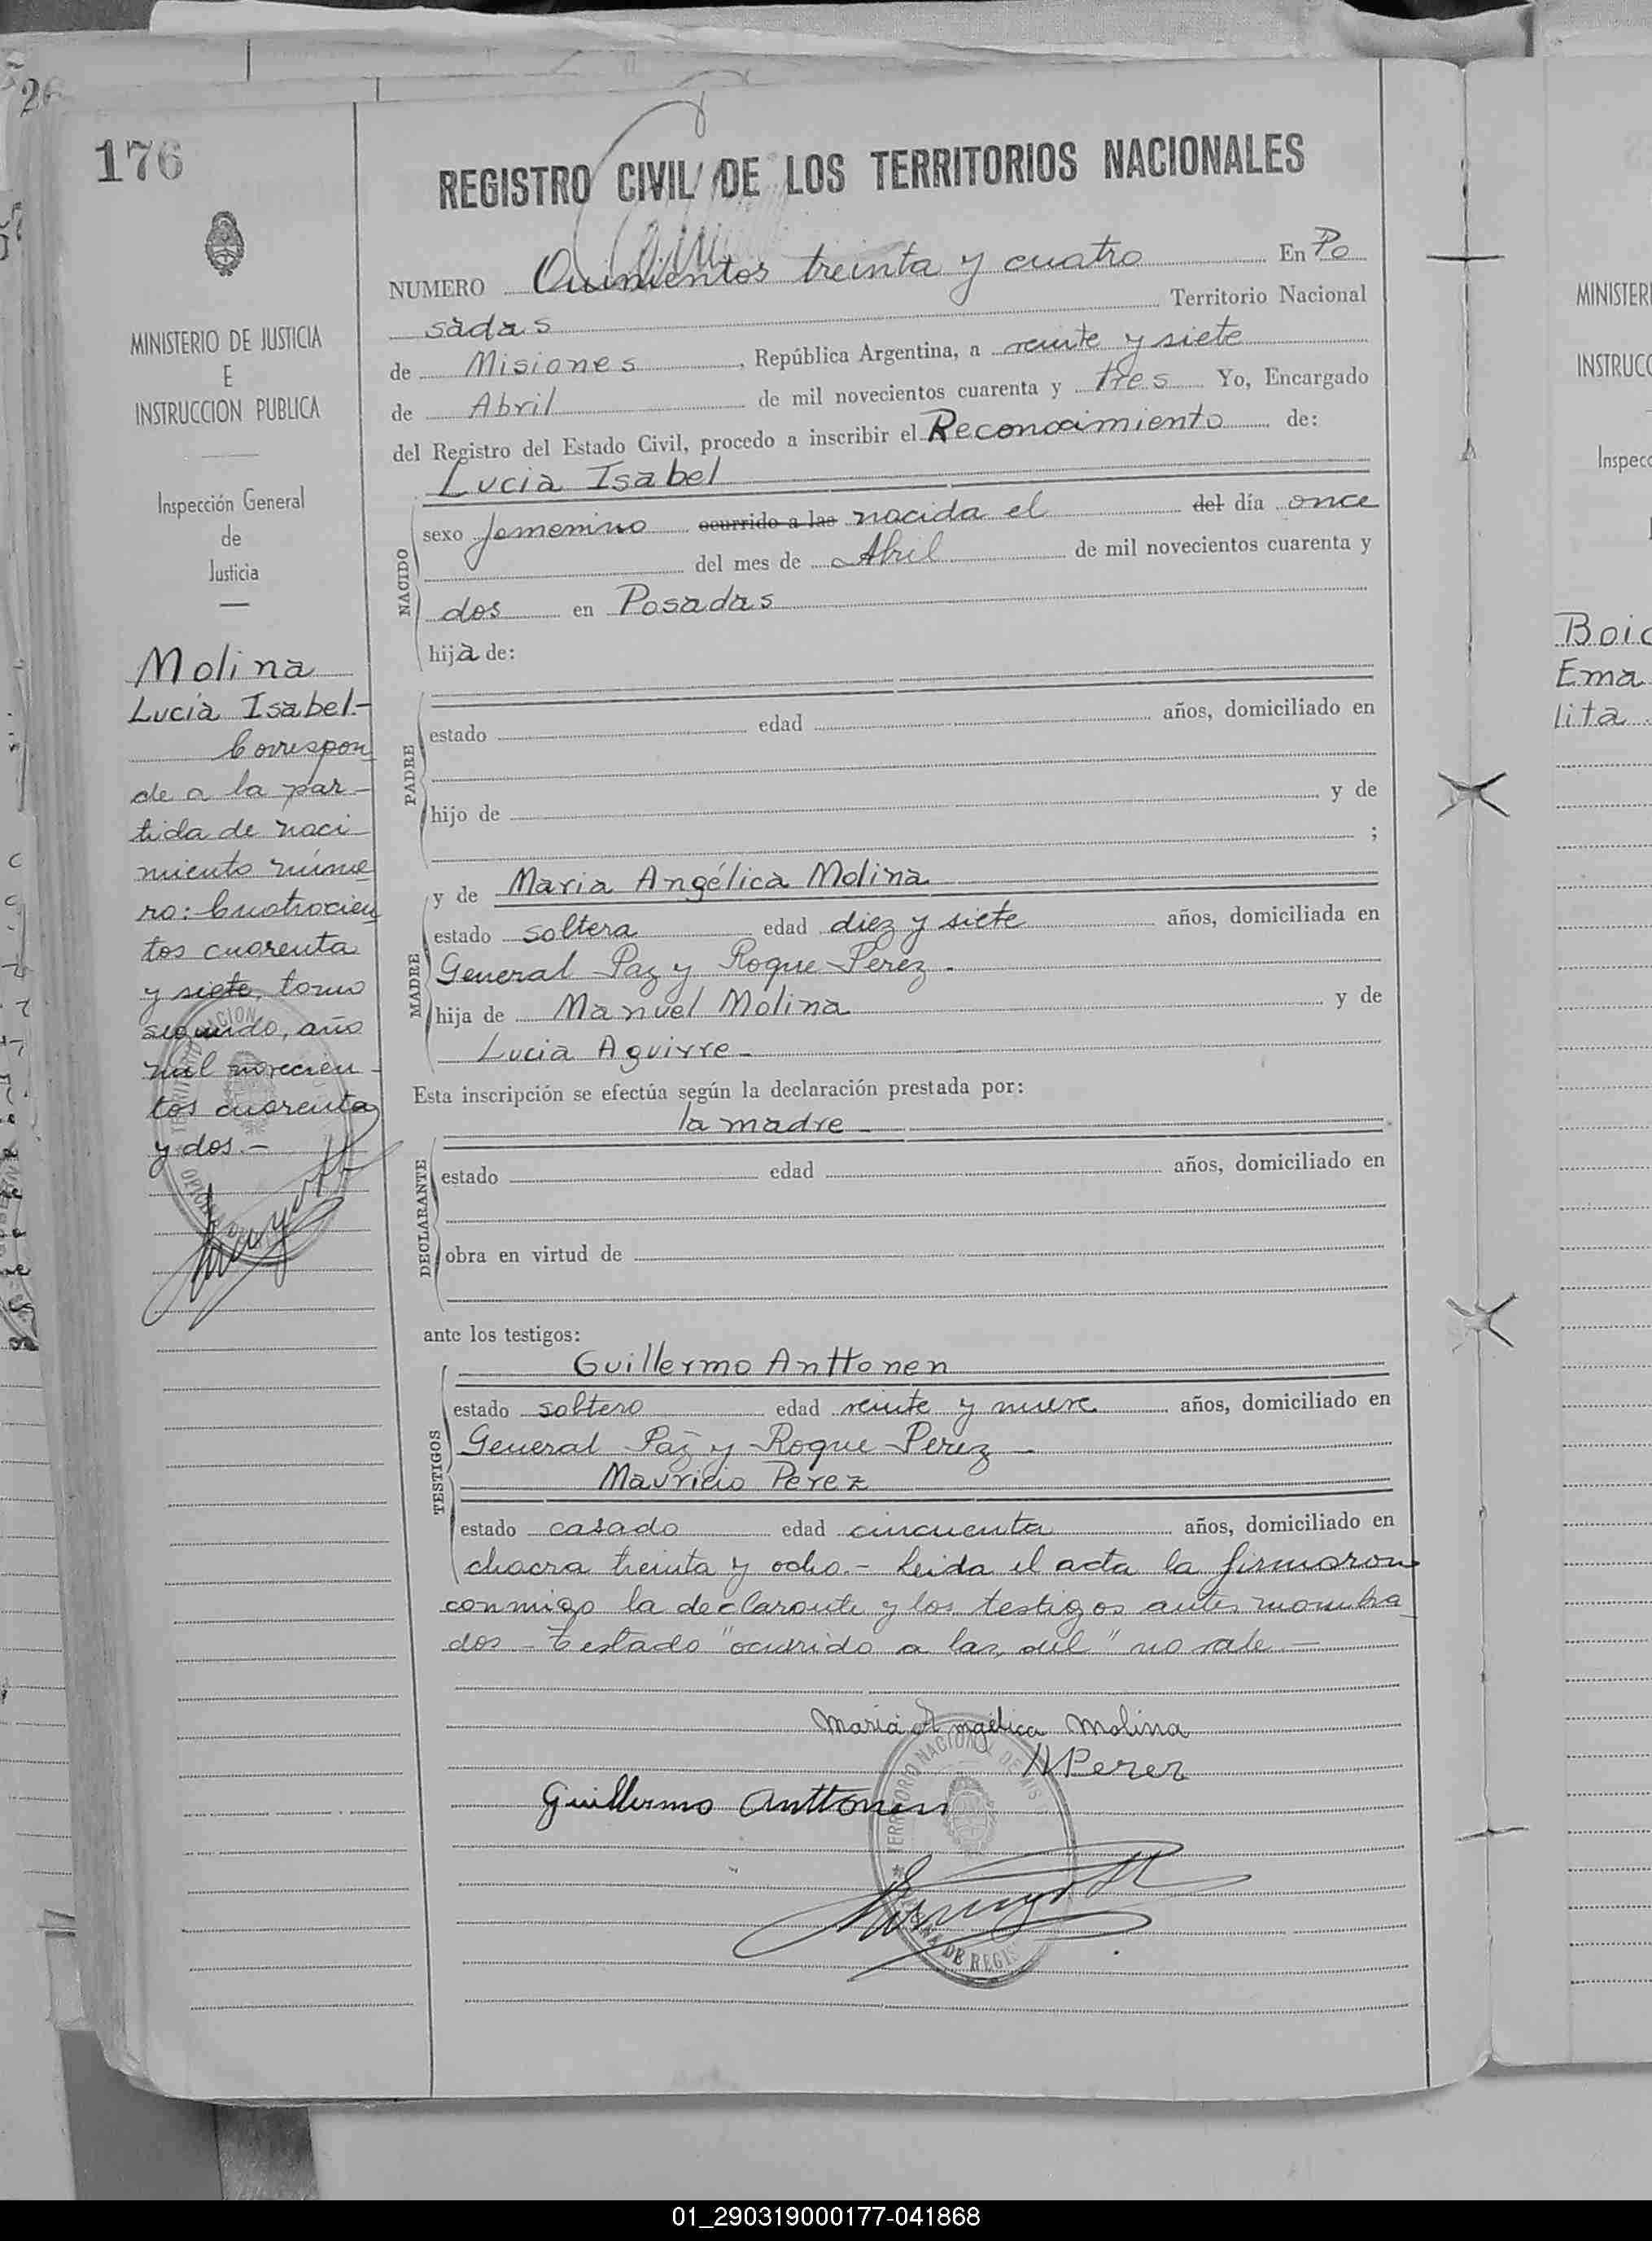 176
MINISTERIO DE JUSTICIA
E
INSTRUCCION PUBLICA
Inspección General
de
Justicia
Molina
Lucia Isabel.-
Correspon
de a la par-
tida de naci
miento núme
ro: Cuatrocien
tos cuarenta
y siete, tomo
segundo, año
mil novecien-
tos cuarenta
y dos.-
REGISTRO CIVIL DE LOS TERRITORIOS NACIONALES
NUMERO Quinientos treinta y cuatro En Po
sadas Territorio Nacional
de Misiones, República Argentina, a veinte y siete
de Abril de mil novecientos cuarenta y tres Yo, Encargado
del Registro del Estado Civil, procedo a inscribir el Reconocimiento de:
Lucia Isabel
NACIDO
sexo femenino ocurrido a las nacida el del día once
del mes de Abril de mil novecientos cuarenta y
dos en Posadas
hija de:
PADRE
estado edad años, domiciliado en
hijo de y de
;
MADRE
y de Maria Angélica Molina
estado soltera edad diez y siete años, domiciliada en
General Paz y Roque Perez.
hija de Manuel Molina y de
Lucia Aguirre-
Esta inscripción se efectúa según la declaración prestada por:
la madre-
DECLARANTE
estado edad años, domiciliado en
obra en virtud de
ante los testigos:
TESTIGOS
Guillermo Anttonen
estado soltero edad veinte y nueve años, domiciliado en
General Paz y Roque Perez-
Mauricio Perez
estado casado edad cincuenta años, domiciliado en
chacra treinta y ocho.- Leida el acta la firmaron
conmigo la declarante y los testigos antes nombra
dos - Testado "ocurrido a las, del" no vale-
Maria Angélica Molina
MPerez
Guillermo Anttonen
TERRITORIO NACIONAL DE MIS
DE REGIS
MINISTERI
INSTRUCC
Inspecc
Boic
Ema
lita
01_290319000177-041868